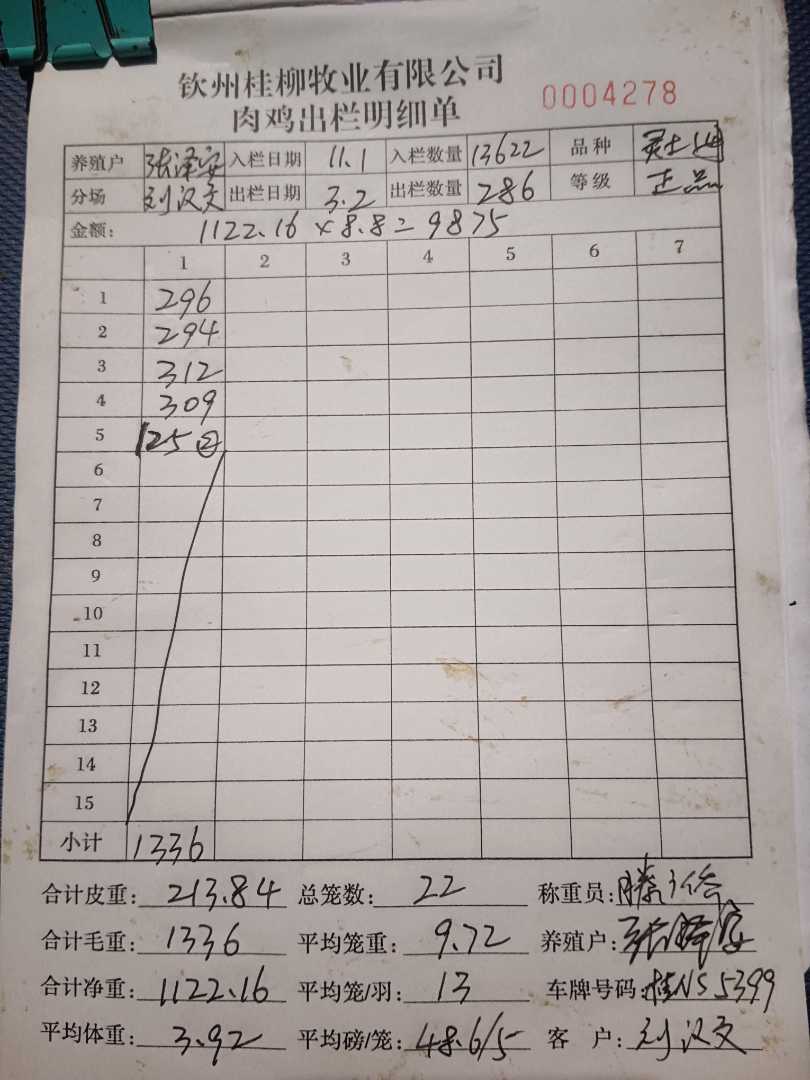 钦州桂柳牧业有限公司
肉鸡出栏明细单 0004278
养殖户 张泽安 入栏日期 11.1 入栏数量 13622 品种 灵土
分场 刘汉文 出栏日期 3.2 出栏数量 286 等级 正品
金额: 1122.16 × 8.8 = 9875
1 2 3 4 5 6 7
1 296
2 294
3 312
4 309
5 125 ②
6
7
8
9
10
11
12
13
14
15
小计 1336
合计皮重: 213.84 总笼数: 22 称重员:
合计毛重: 1336 平均笼重: 9.72 养殖户: 张泽安
合计净重: 1122.16 平均笼/羽: 13 车牌号码: 桂NS5399
平均体重: 3.92 平均磅/笼: 48.6/5 客 户: 刘汉文